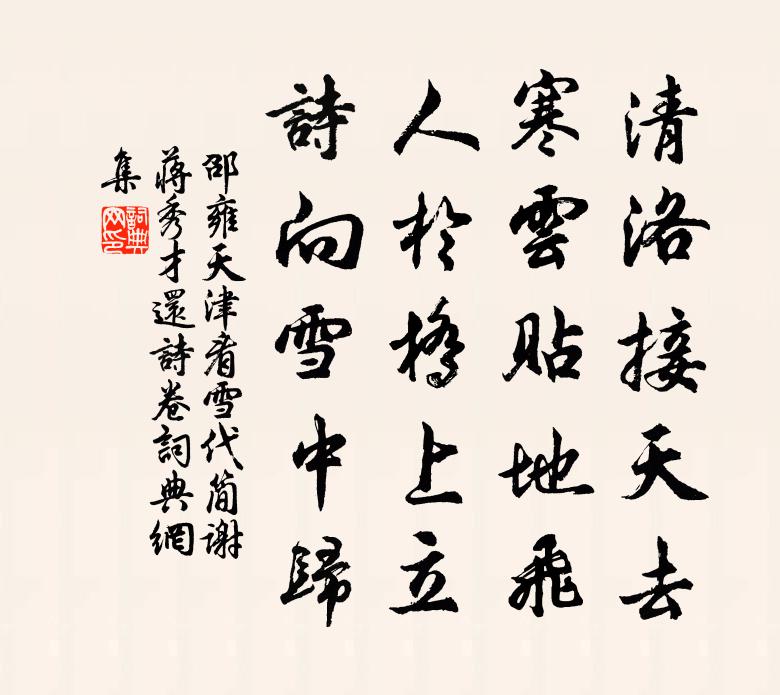 清洛接天去
寒雲貼地飛
人於橋上立
詩向雪中歸
邵雍天津看雪代简谢
蔣秀才還詩卷詞典網
集
詞典
网印